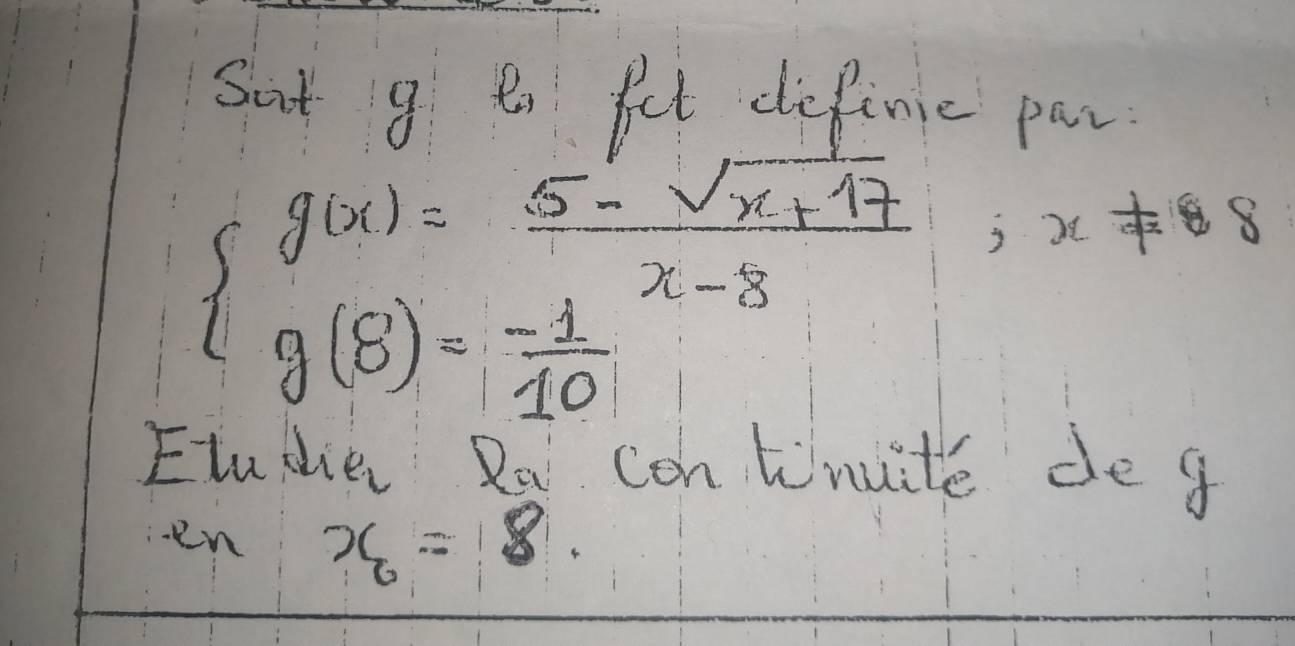 Soit g la fct définie par:
g(x) = (5 - √(x+17)) / (x - 8) ; x ≠ 8
g(8) = -1/10
Etudier la continuité de g
en x₀ = 8.